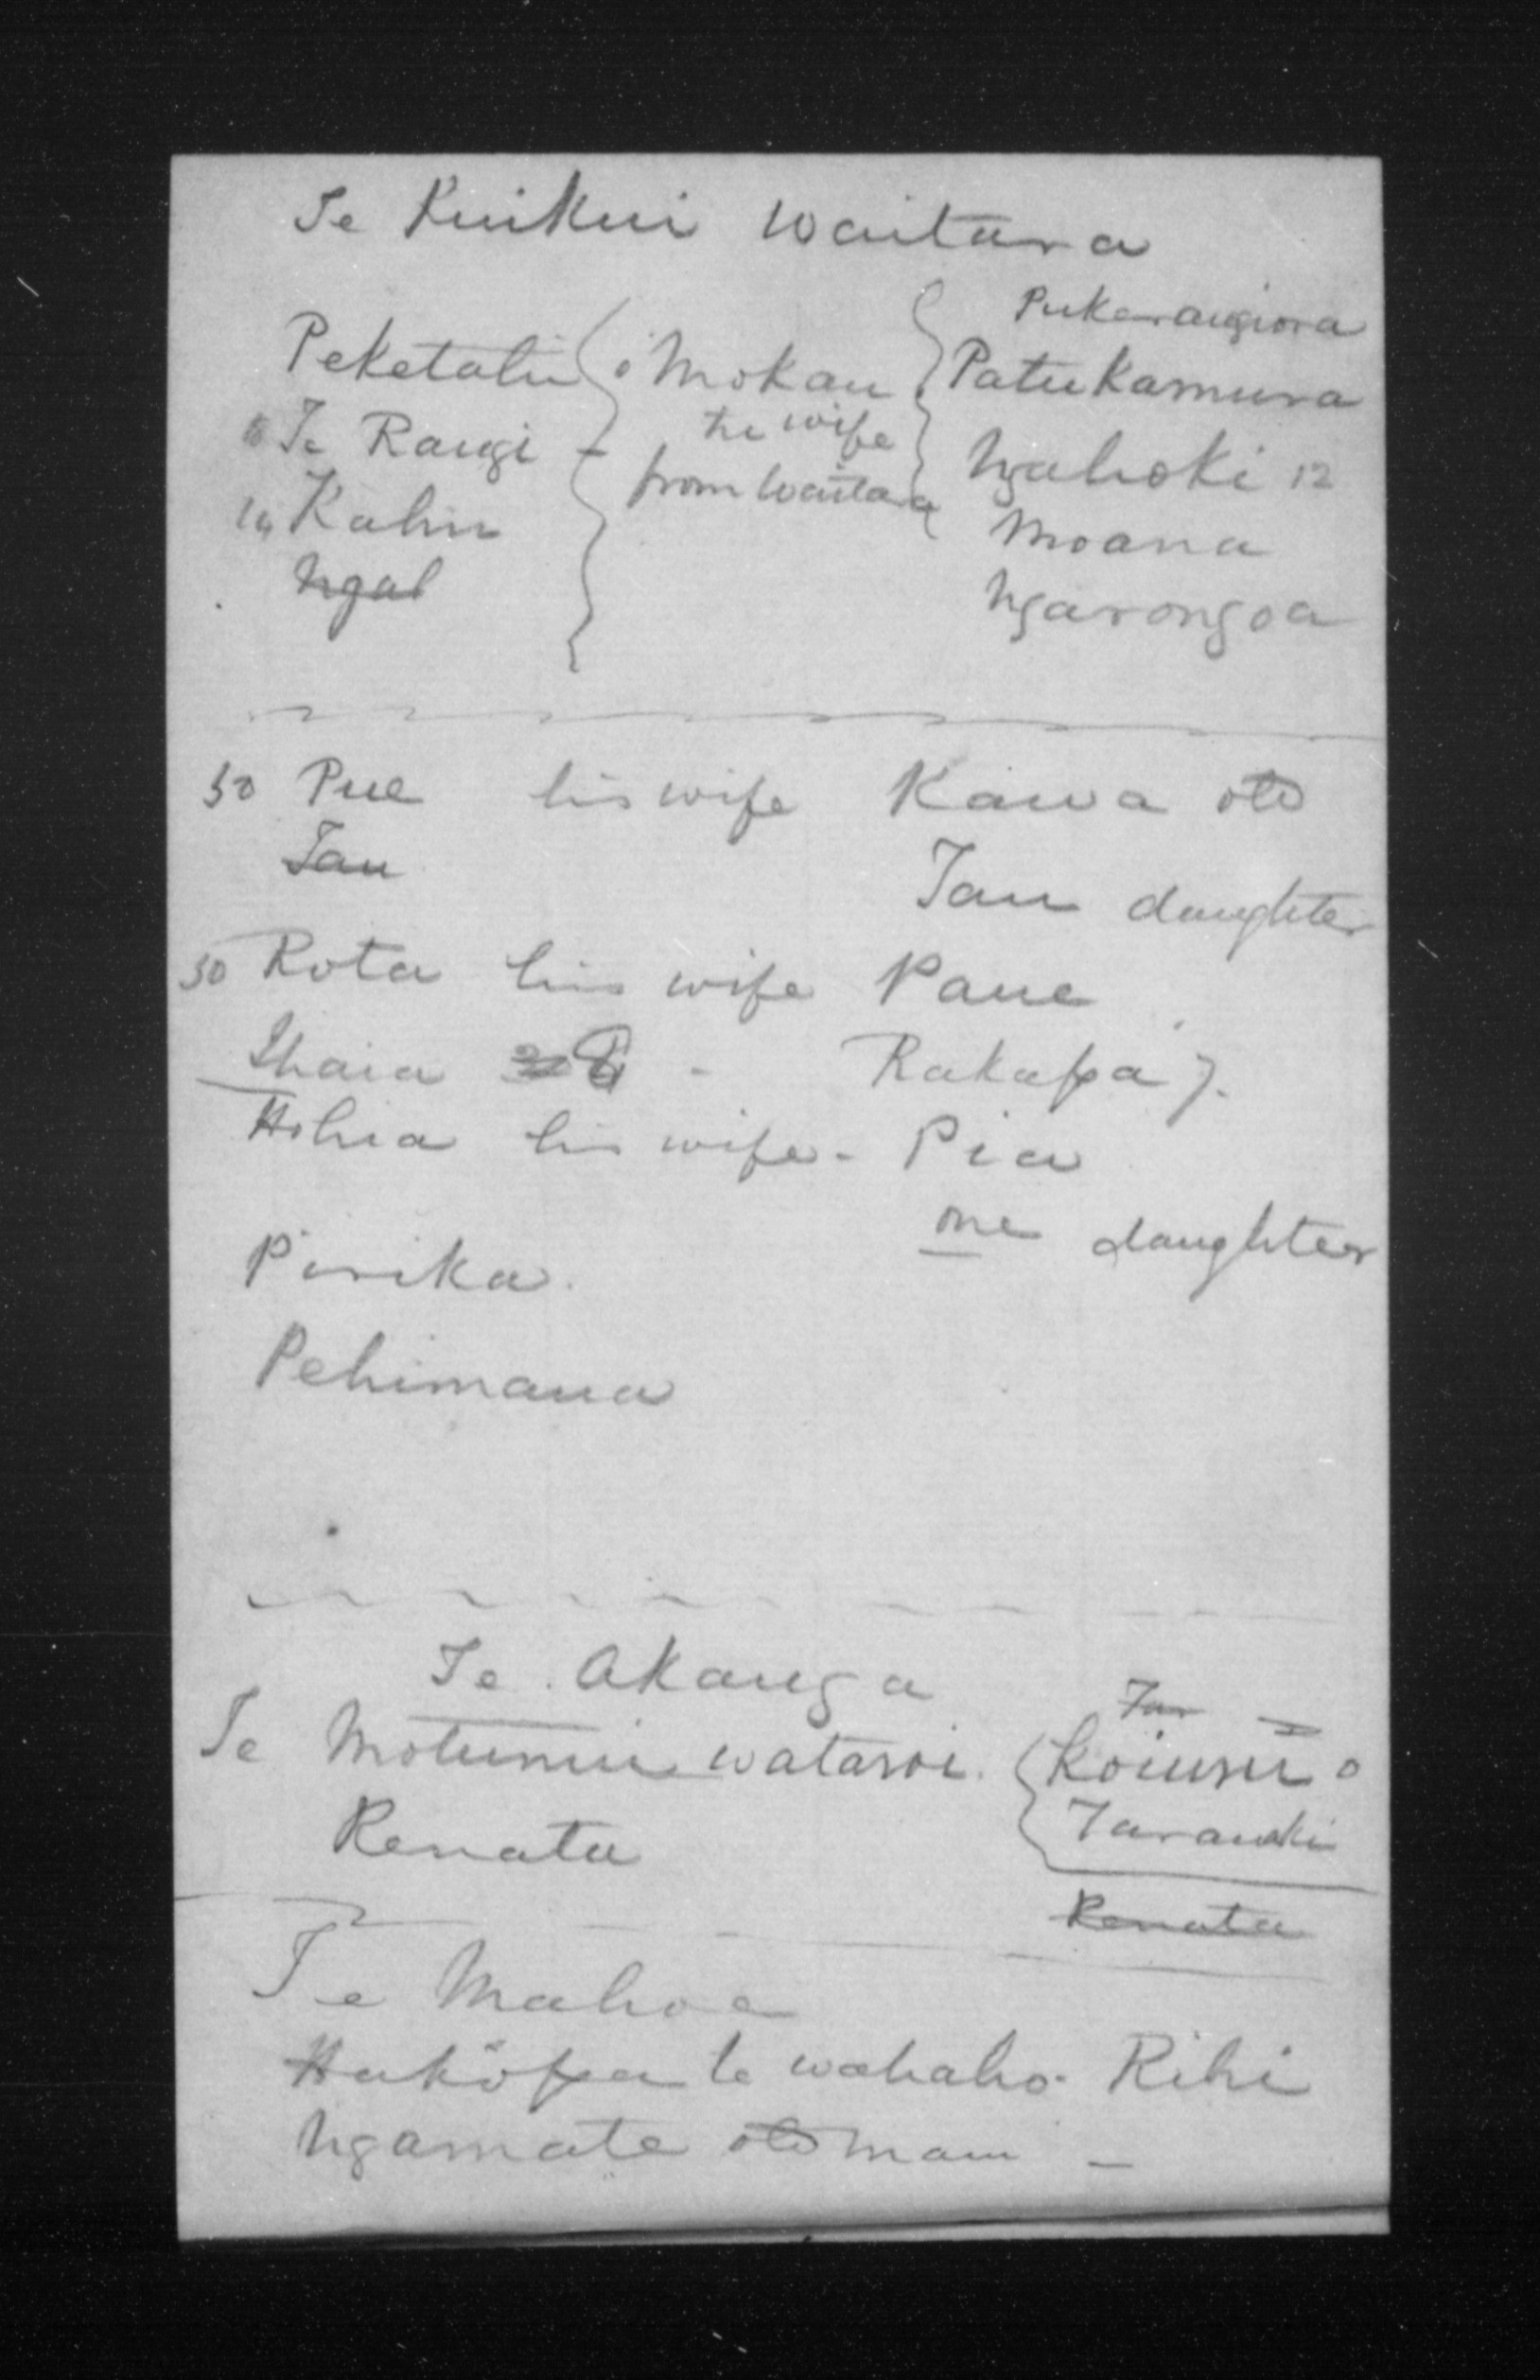 Te Kuikui Waitara
Pukerangiora
Peketahi Mokau Patukamura
Te Rangi the wife Ngahoki 12
14 Kahu from Waitara Moana
Ngah Ngarongoa
50 Pue his wife Kawa old
Tau
Tau daughter
50 Rota his wife Paue
Ihaia 8 - Rakapa 7.
Hohia his wife - Pia
one daughter
Pirika.
Pehimana
Te Akanga
Tar
Te Motumiu wataroi. Koiuru o
Renata Taranaki
Renata
Te Mahoe
Hakopa te wahaho. Rihi
Ngamate old man -